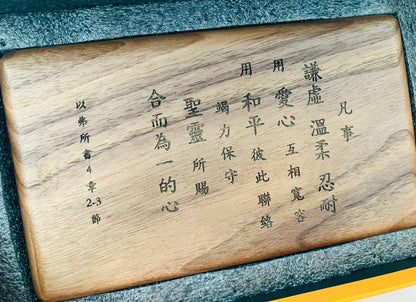 凡事
謙虛 溫柔 忍耐
用 愛心 互相寬容
用 和平 彼此聯絡
竭力保守
聖靈 所賜
合而為一的心
以弗所書4章2-3節